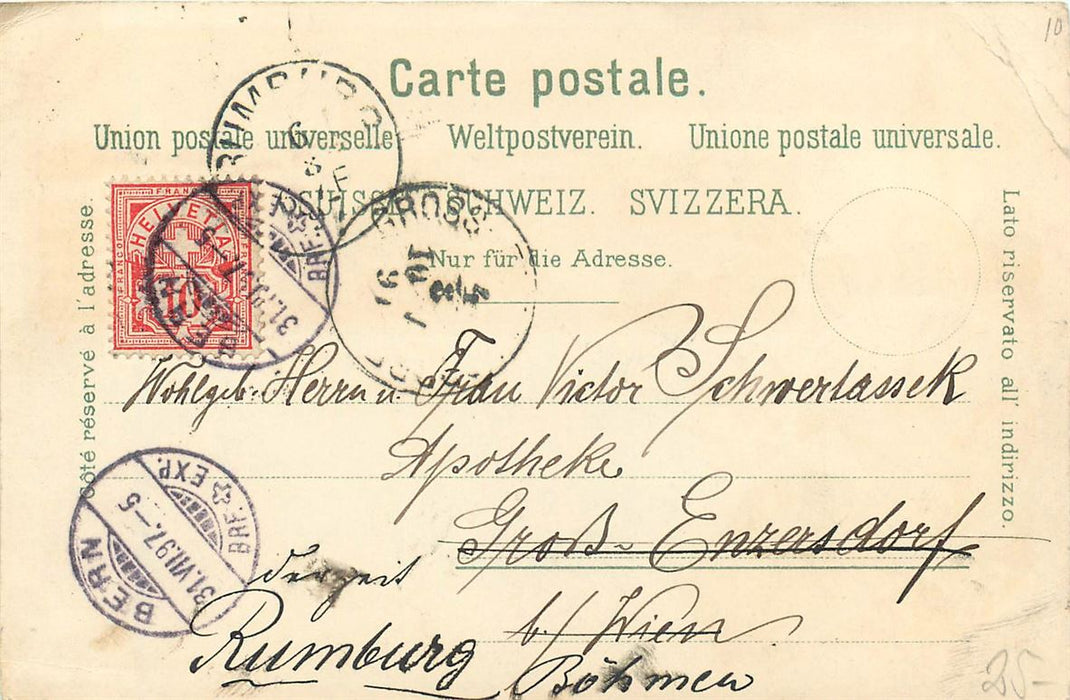 10
Carte postale.
Union postale universelle. Weltpostverein. Unione postale universale.
SUISSE. SCHWEIZ. SVIZZERA.
Nur für die Adresse.
Côté réservé à l'adresse.
Lato riservato all' indirizzo.
RUMBURG
6
8
FRANCO
FRANCO
FRANCO
HELVETIA
10
BERN
31.VII.97.-5
BRF. EXP.
GROSS
Wohlgeb. Herrn u. Frau Victor Schwertassek
Apotheke
Groß-Enzersdorf
b/ Wien
derzeit
Rumburg
Böhmen
BERN
31.VII.97.-5
BRF. EXP.
25-